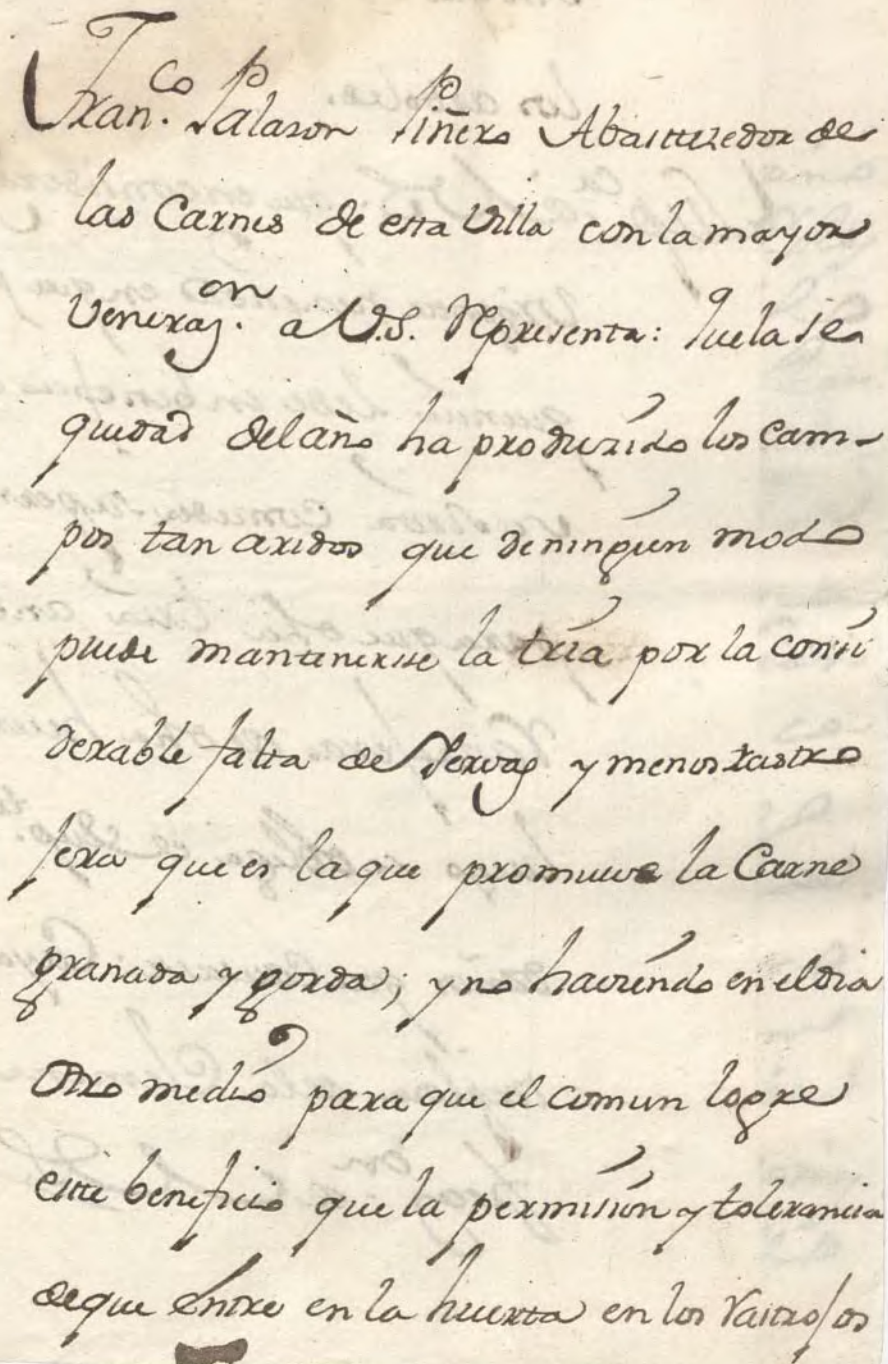 Fran.co Palazon Piñero Abastezedor de
las Carnes de esta Villa con la mayor
Veneraz.on a V.S. Representa: Que la se
quedad del año ha produzido los cam-
pos tan aridos que de ningun modo
puede mantenerse la tria por la consi
derable falta de Yervas y menos rastro
jera que es la que promueve la Carne
granada y gorda; y no haviendo en el dia
otro medio para que el comun logre
este beneficio que la permision y tolerancia
de que entre en la huerta en los rastrojos